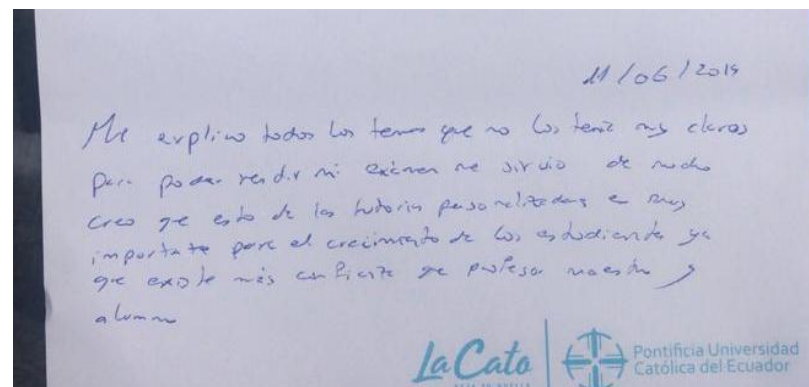 11/06/2019
Me explico todos los temas que no los tenia muy claros
para poder rendir mi exámen me sirvio de mucho
creo que esto de las tutorias personalizadas es muy
importante para el crecimiento de los estudiantes ya
que existe más confianza que profesor maestro y
alumno
La Cato
Pontificia Universidad
Católica del Ecuador